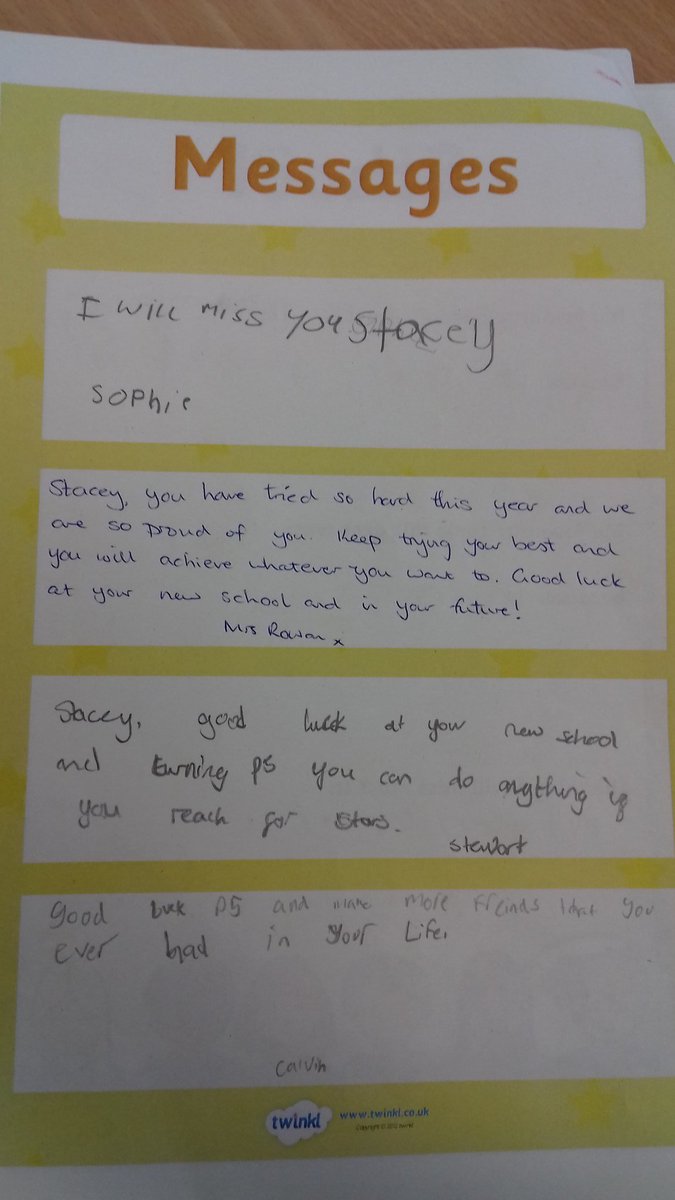 Messages
I will miss you Stacey
Sophie
Stacey, you have tried so hard this year and we
are so proud of you. Keep trying your best and
you will achieve whatever you want to. Good luck
at your new school and in your future!
Mrs Rowan x
Stacey, good luck at your new school
and turning P5 you can do anything if
you reach for stars.
Stewart
good luck P5 and make more freinds that you
ever had in your Life.
Calvin
twinkl www.twinkl.co.uk
Copyright © 2012 twinkl